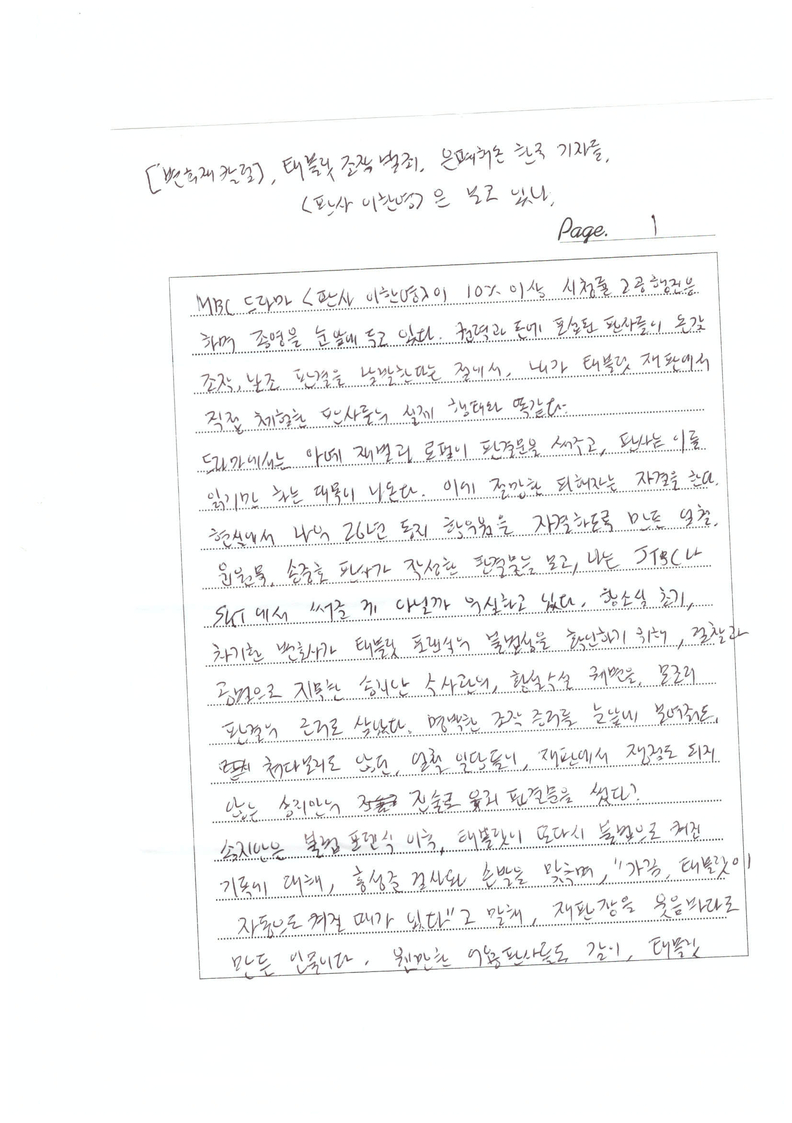 [변희재칼럼], 태블릿 조작 범죄, 은폐해온 한국 기자들,
<판사 이한영>은 보고 있나,
Page. 1
MBC 드라마 <판사 이한영>이 10% 이상 시청률 고공행진을
하며 종영을 눈앞에 두고 있다. 권력과 돈에 포섭된 판사들이 온갖
조작, 날조 판결을 남발한다는 점에서, 내가 태블릿 재판에서
직접 체험한 판사들의 실제 행태와 똑같다.
드라마에서는 아예 재벌과 로펌이 판결문을 써주고, 판사는 이를
읽기만 하는 대목이 나온다. 이에 절망한 피해자는 자결을 한다.
현실에서 나의 26년 동지 황의원을 자결하도록 만든 엄철,
윤원묵, 송중호 판사가 작성한 판결문을 보고, 나는 JTBC나
SKT에서 써준 게 아닐까 의심하고 있다. 항소심 초기,
차기환 변호사가 태블릿 포렌식의 불법성을 확인하기 위해, 검찰과
공범으로 지목한 송지안 수사관의, 횡설수설 궤변을, 모조리
판결의 근거로 삼았다. 명백한 조작 증거를 눈앞에 보여줘도,
쳐다보지도 않던, 엄철 일당들이, 재판에서 쟁점도 되지
않은 송지안의 진술로 유죄 판결문을 썼다?
송지안은 불법 포렌식 이후, 태블릿이 또다시 불법으로 켜진
기록에 대해, 홍성준 검사와 손발을 맞추며, "가끔, 태블릿이
자동으로 켜질 때가 있다"고 말해, 재판장을 웃음바다로
만든 인물이다. 웬만한 어용판사들도 감히, 태블릿